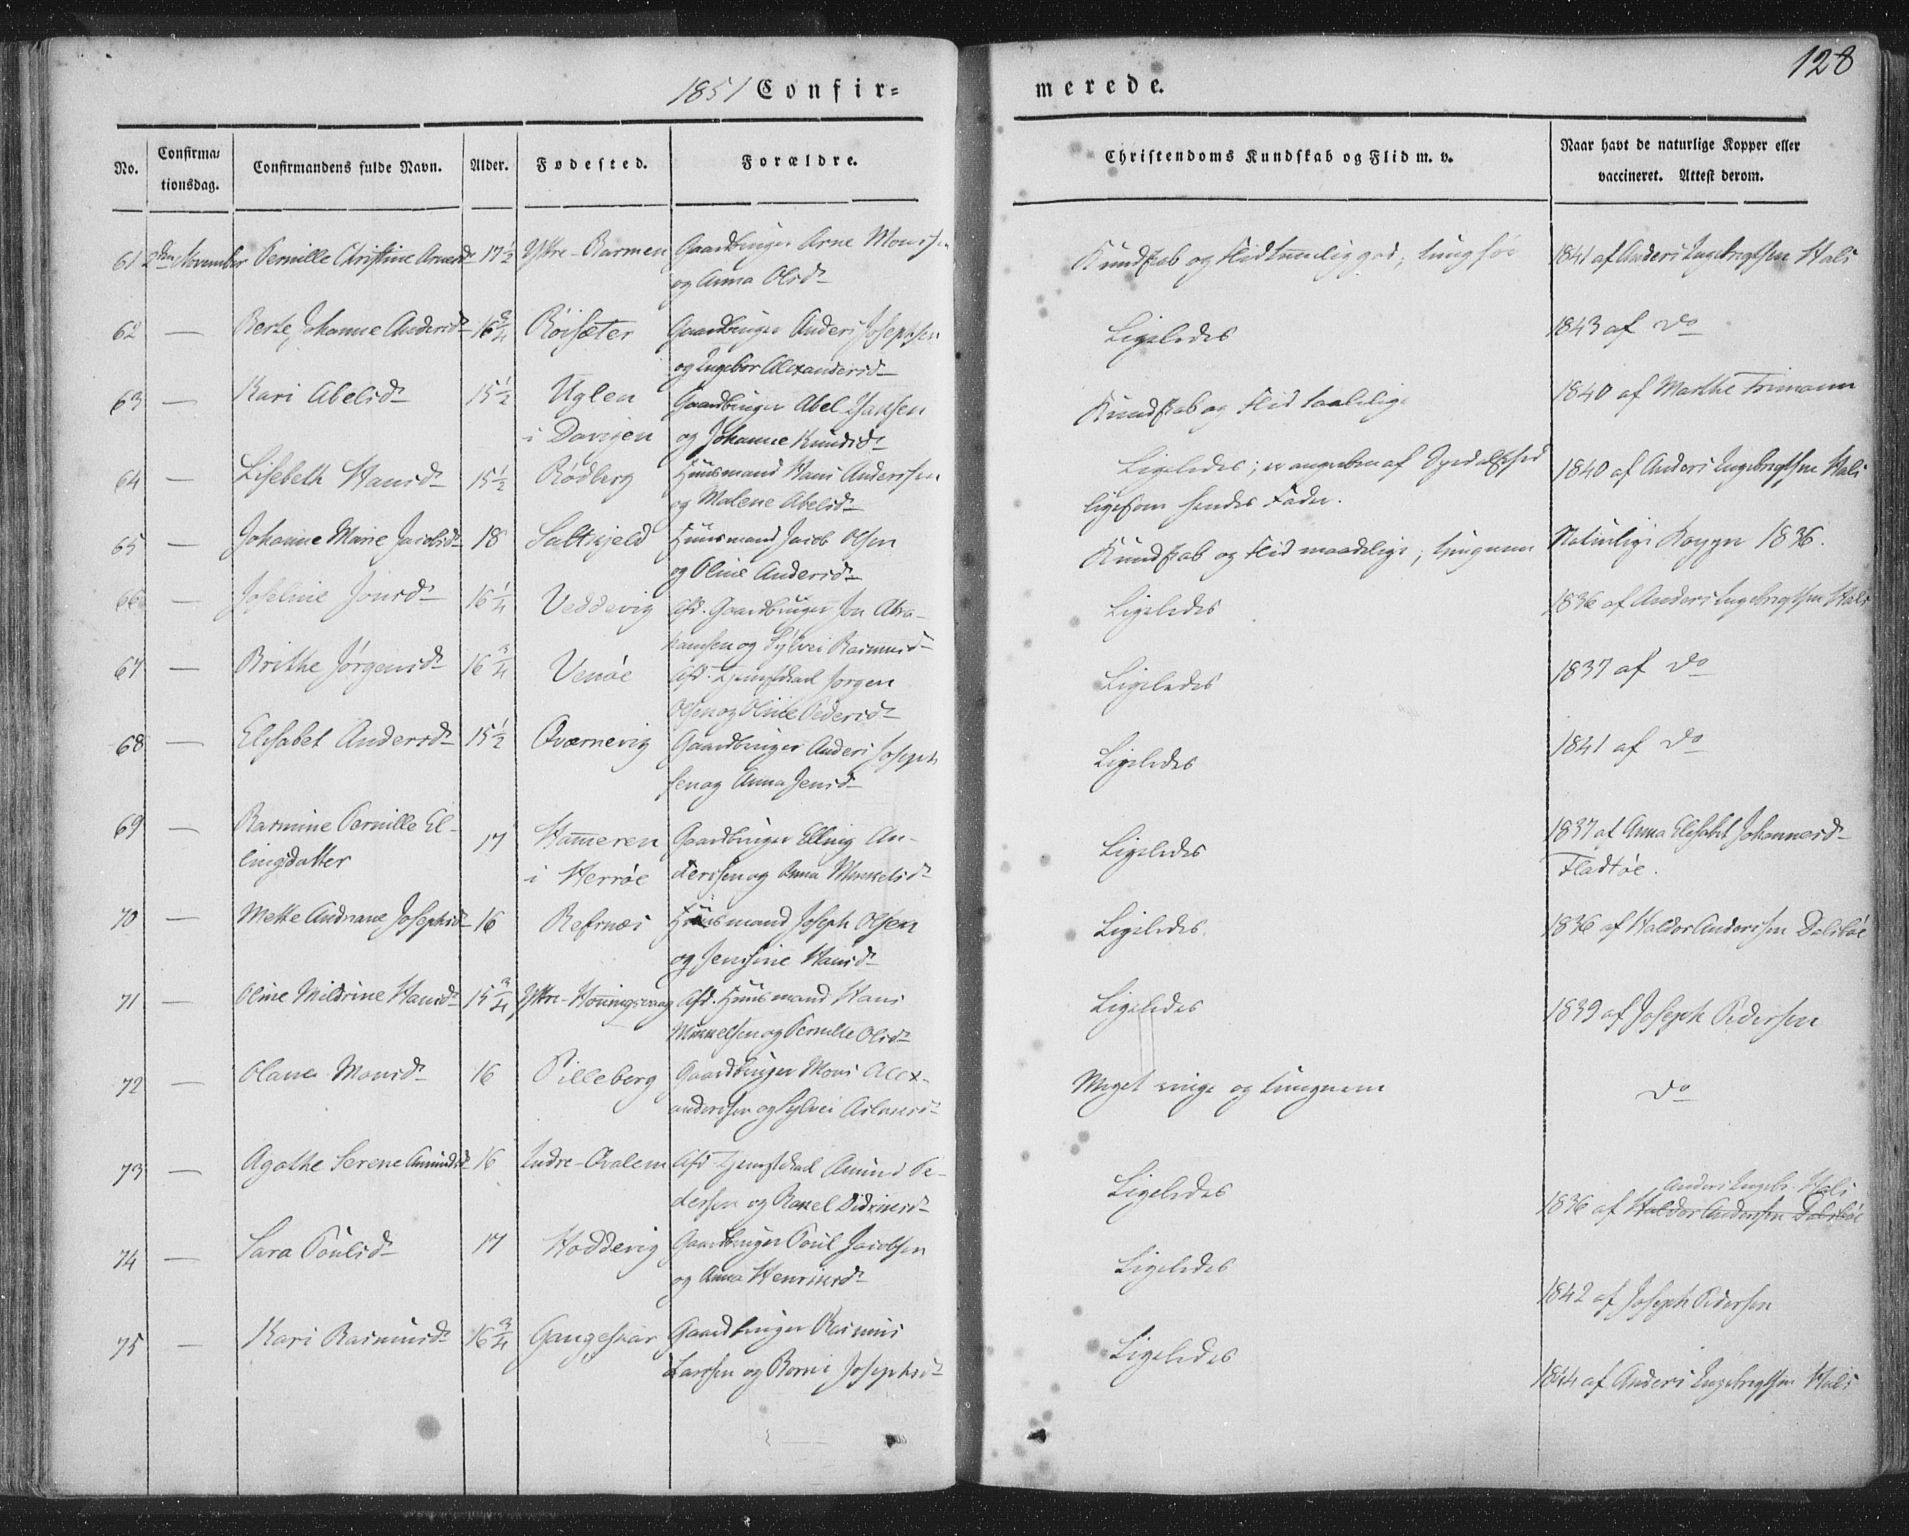 1851 Confir=
merede.
128
No.
Confirma-
tionsdag.
Confirmandens fulde Navn.
Alder.
Fødested.
Forældre.
Christendoms Kundskab og Flid m. v.
Naar havt de naturlige Kopper eller
vaccineret. Attest derom.
61 2den November Pernille Christine Arnesdr 17 1/2 Ystre-Barmen Gaardbruger Arne Monssen
og Anna Olsdr
Kundskab og Flid temmelig god; 1841 af Anders Ingebrigtsen Hals
62 — Berte Johanne Andersdr 16 3/4 Röisæter Gaardbruger Anders Josephsen
og Ingebor Alexandersdr
Ligeledes 1843 af do
63 — Kari Abelsdr 15 1/2 Uglen Gaardbruger Abel
i Davigen og Johanne Knudsdr
Kundskab og Flid taalelige 1840 af Marthe Frimann
64 — Lisebeth Hansdr 15 1/2 Rødberg Huusmand Hans Anderssen
og Malene Abelsdr
Ligeledes; er angreben af Spedalskhed 1840 af Anders Ingebrigtsen Hals
ligesom hendes Fader.
65 — Johanne Marie Jacobsdr 18 Saltkjeld Huusmand Jacob Olsen
og Oline Andersdr
Kundskab og Flid maadelige; tungnem Naturlige Kopper 1836.
66 — Joseline Jonsdr 16 1/4 Veddevig Afd. Gaardbruger Jon Abra-
hamsen og Sylvei Rasmusdr
Ligeledes 1836 af Anders Ingebrigtsen Hals
67 — Brithe Jørgensdr 16 3/4 Venöe Afd. Tjenestkarl Jørgen
Olsen og Oline Pedersdr
Ligeledes 1837 af do
68 — Elisabet Andersdr 15 1/2 Qværnevig Gaardbruger Anders Joseph
sen og Anna Jensdr
Ligeledes 1841 af do
69 — Rasmine Pernille El-
lingsdatter 17 Ham̅eren Gaardbruger Elling An-
i Herröe derssen og Anna Mikkelsdr
Ligeledes 1837 af Anna Elisabet Johannesdr
Fladtöe.
70 — Mette Andriane Josephsdr 16 Refsnæs Huusmand Joseph Olsen
og Jensine Hansdr
Ligeledes. 1836 af Haldor Anderssen Dalsböe
71 — Oline Mildrine Hansdr 15 3/4 Ystre-Hon̅ingsvaag Afd. Huusmand Hans
Mikkelsen og Pernille Olsdr
Ligeledes 1839 af Joseph Pedersen
72 — Olava Monsdr 16 Pilleberg Gaardbruger Mons Alex-
anderssen og Sylvei
Meget ringe og tungnem do
73 — Agathe Serene Amundsdr 16 Indre-Qvalem Afd Tjenestkarl Amund Pe-
dersen og Rakel Didriksdr
Ligeledes Anders Ingebr. Hals
1836 af Haldor Anderssen Dalsböe
74 — Sara Poulsdr 17 Hoddevig Gaardbruger Poul Jacobsen
og Anna Henriksdr
Ligeledes 1842 af Joseph Pedersen
75 — Kari Rasmusdr 16 3/4 Gangeskar Gaardbruger Rasmus
Larssen og Josephsdr
Ligeledes 1844 af Anders Ingebrigtsen Hals